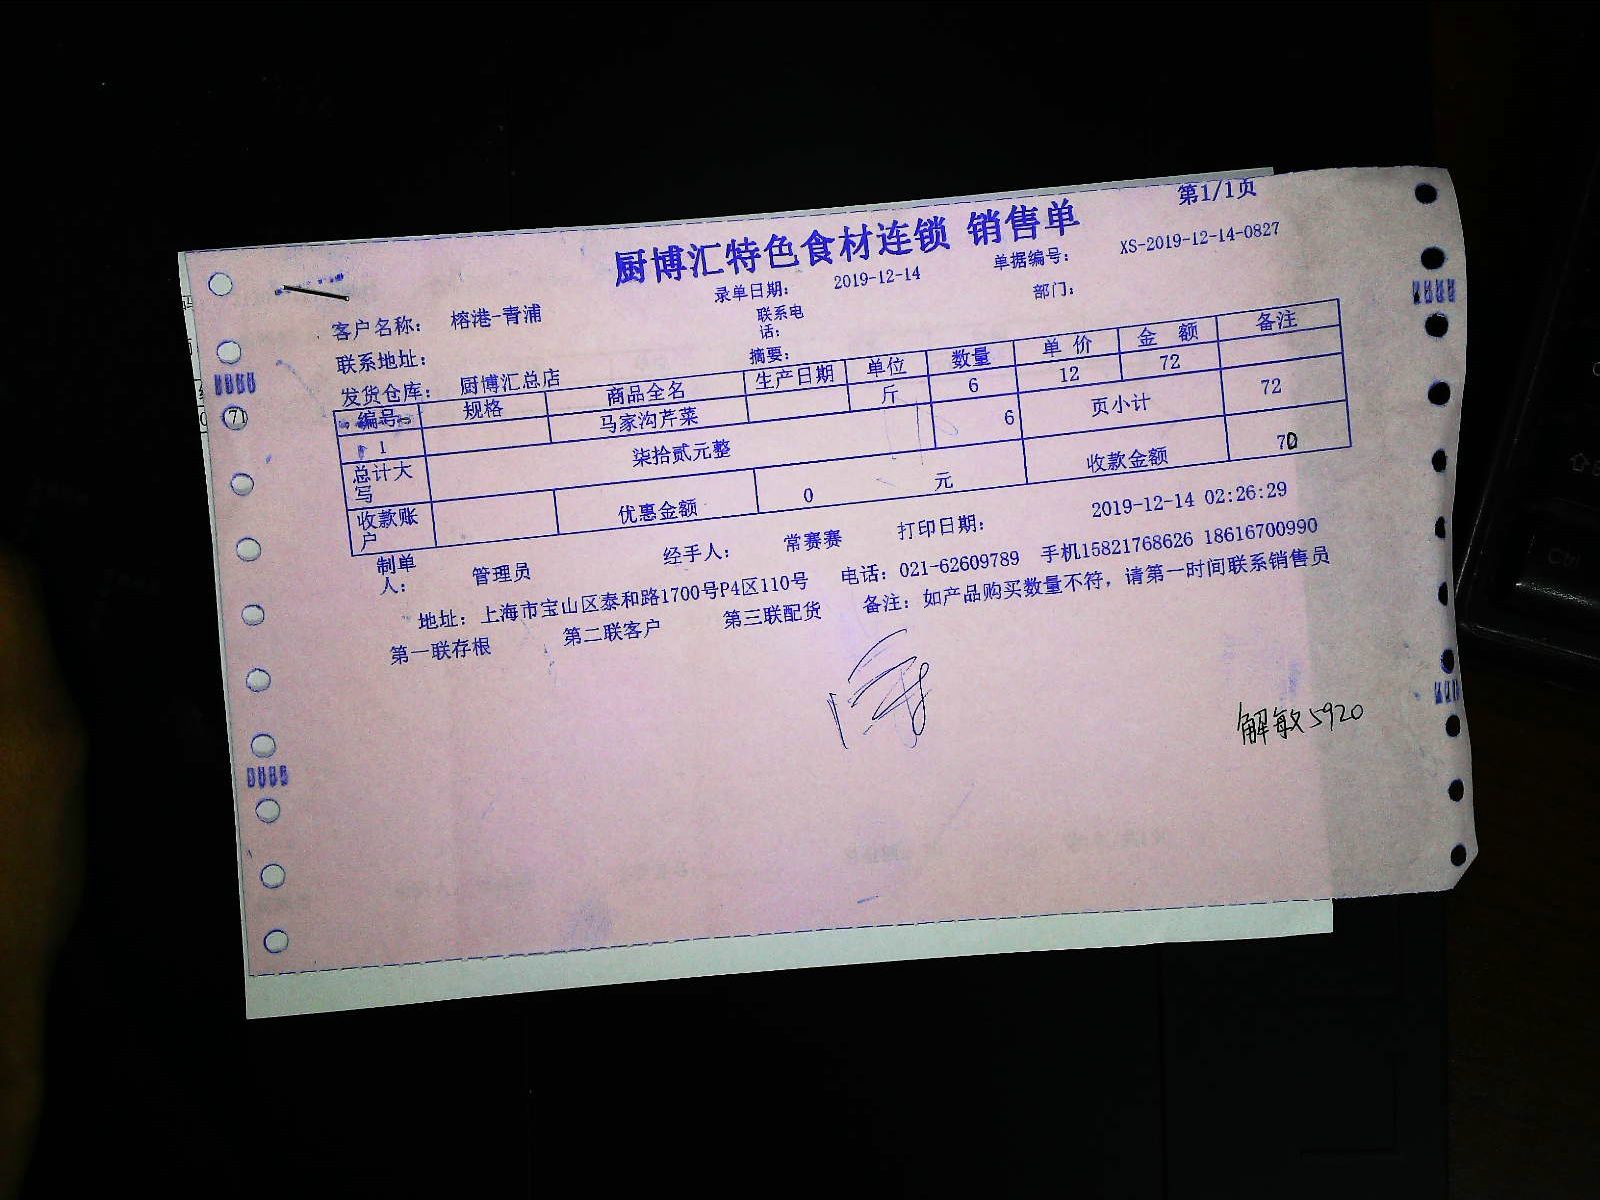 第1/1页
厨博汇特色食材连锁 销售单
录单日期： 2019-12-14 单据编号： XS-2019-12-14-0827
客户名称： 榕港-青浦 联系电话： 部门：
联系地址： 摘要：
发货仓库： 厨博汇总店
编号 规格 商品全名 生产日期 单位 数量 单价 金额 备注
1 马家沟芹菜 斤 6 12 72
总计大写 柒拾贰元整 6 页小计 72
收款账户 优惠金额 0 元 收款金额 70
制单人： 管理员 经手人： 常赛赛 打印日期： 2019-12-14 02:26:29
地址：上海市宝山区泰和路1700号P4区110号 电话：021-62609789 手机15821768626 18616700990
第一联存根 第二联客户 第三联配货 备注：如产品购买数量不符，请第一时间联系销售员
解敏5920
71